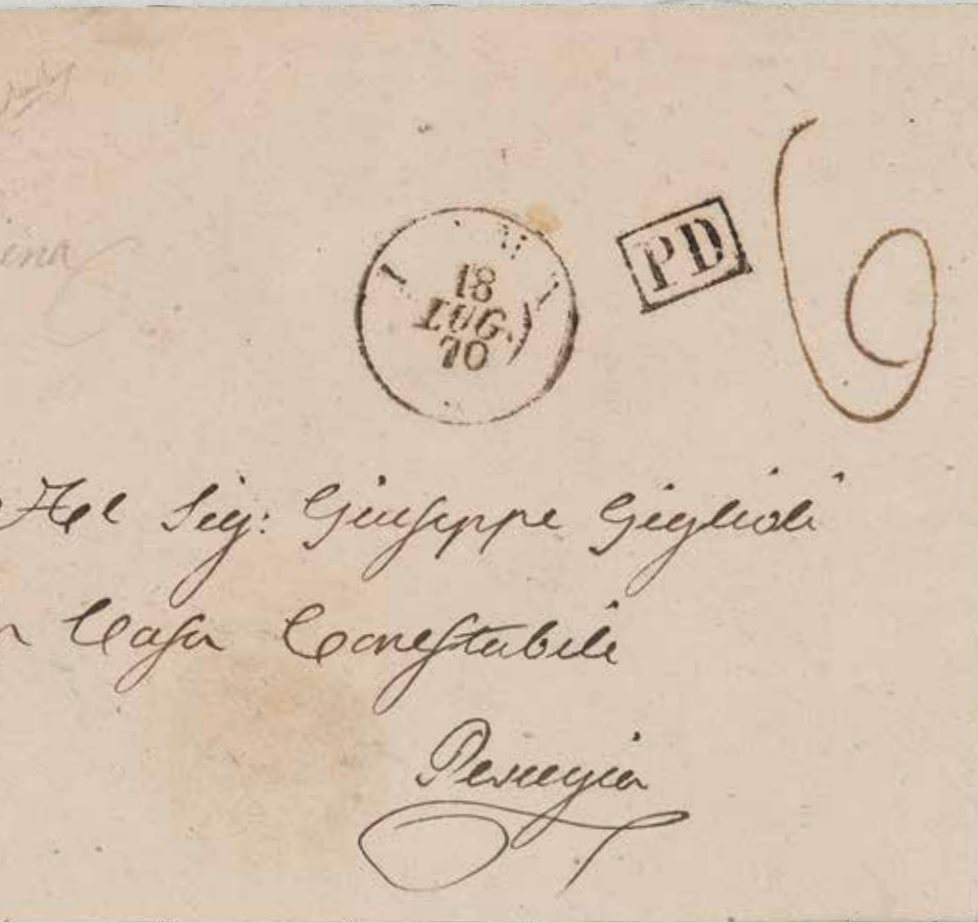 18
LUG.
70
PD
6
Al Sig: Giuseppe Giglioli
Casa Conestabili
Perugia